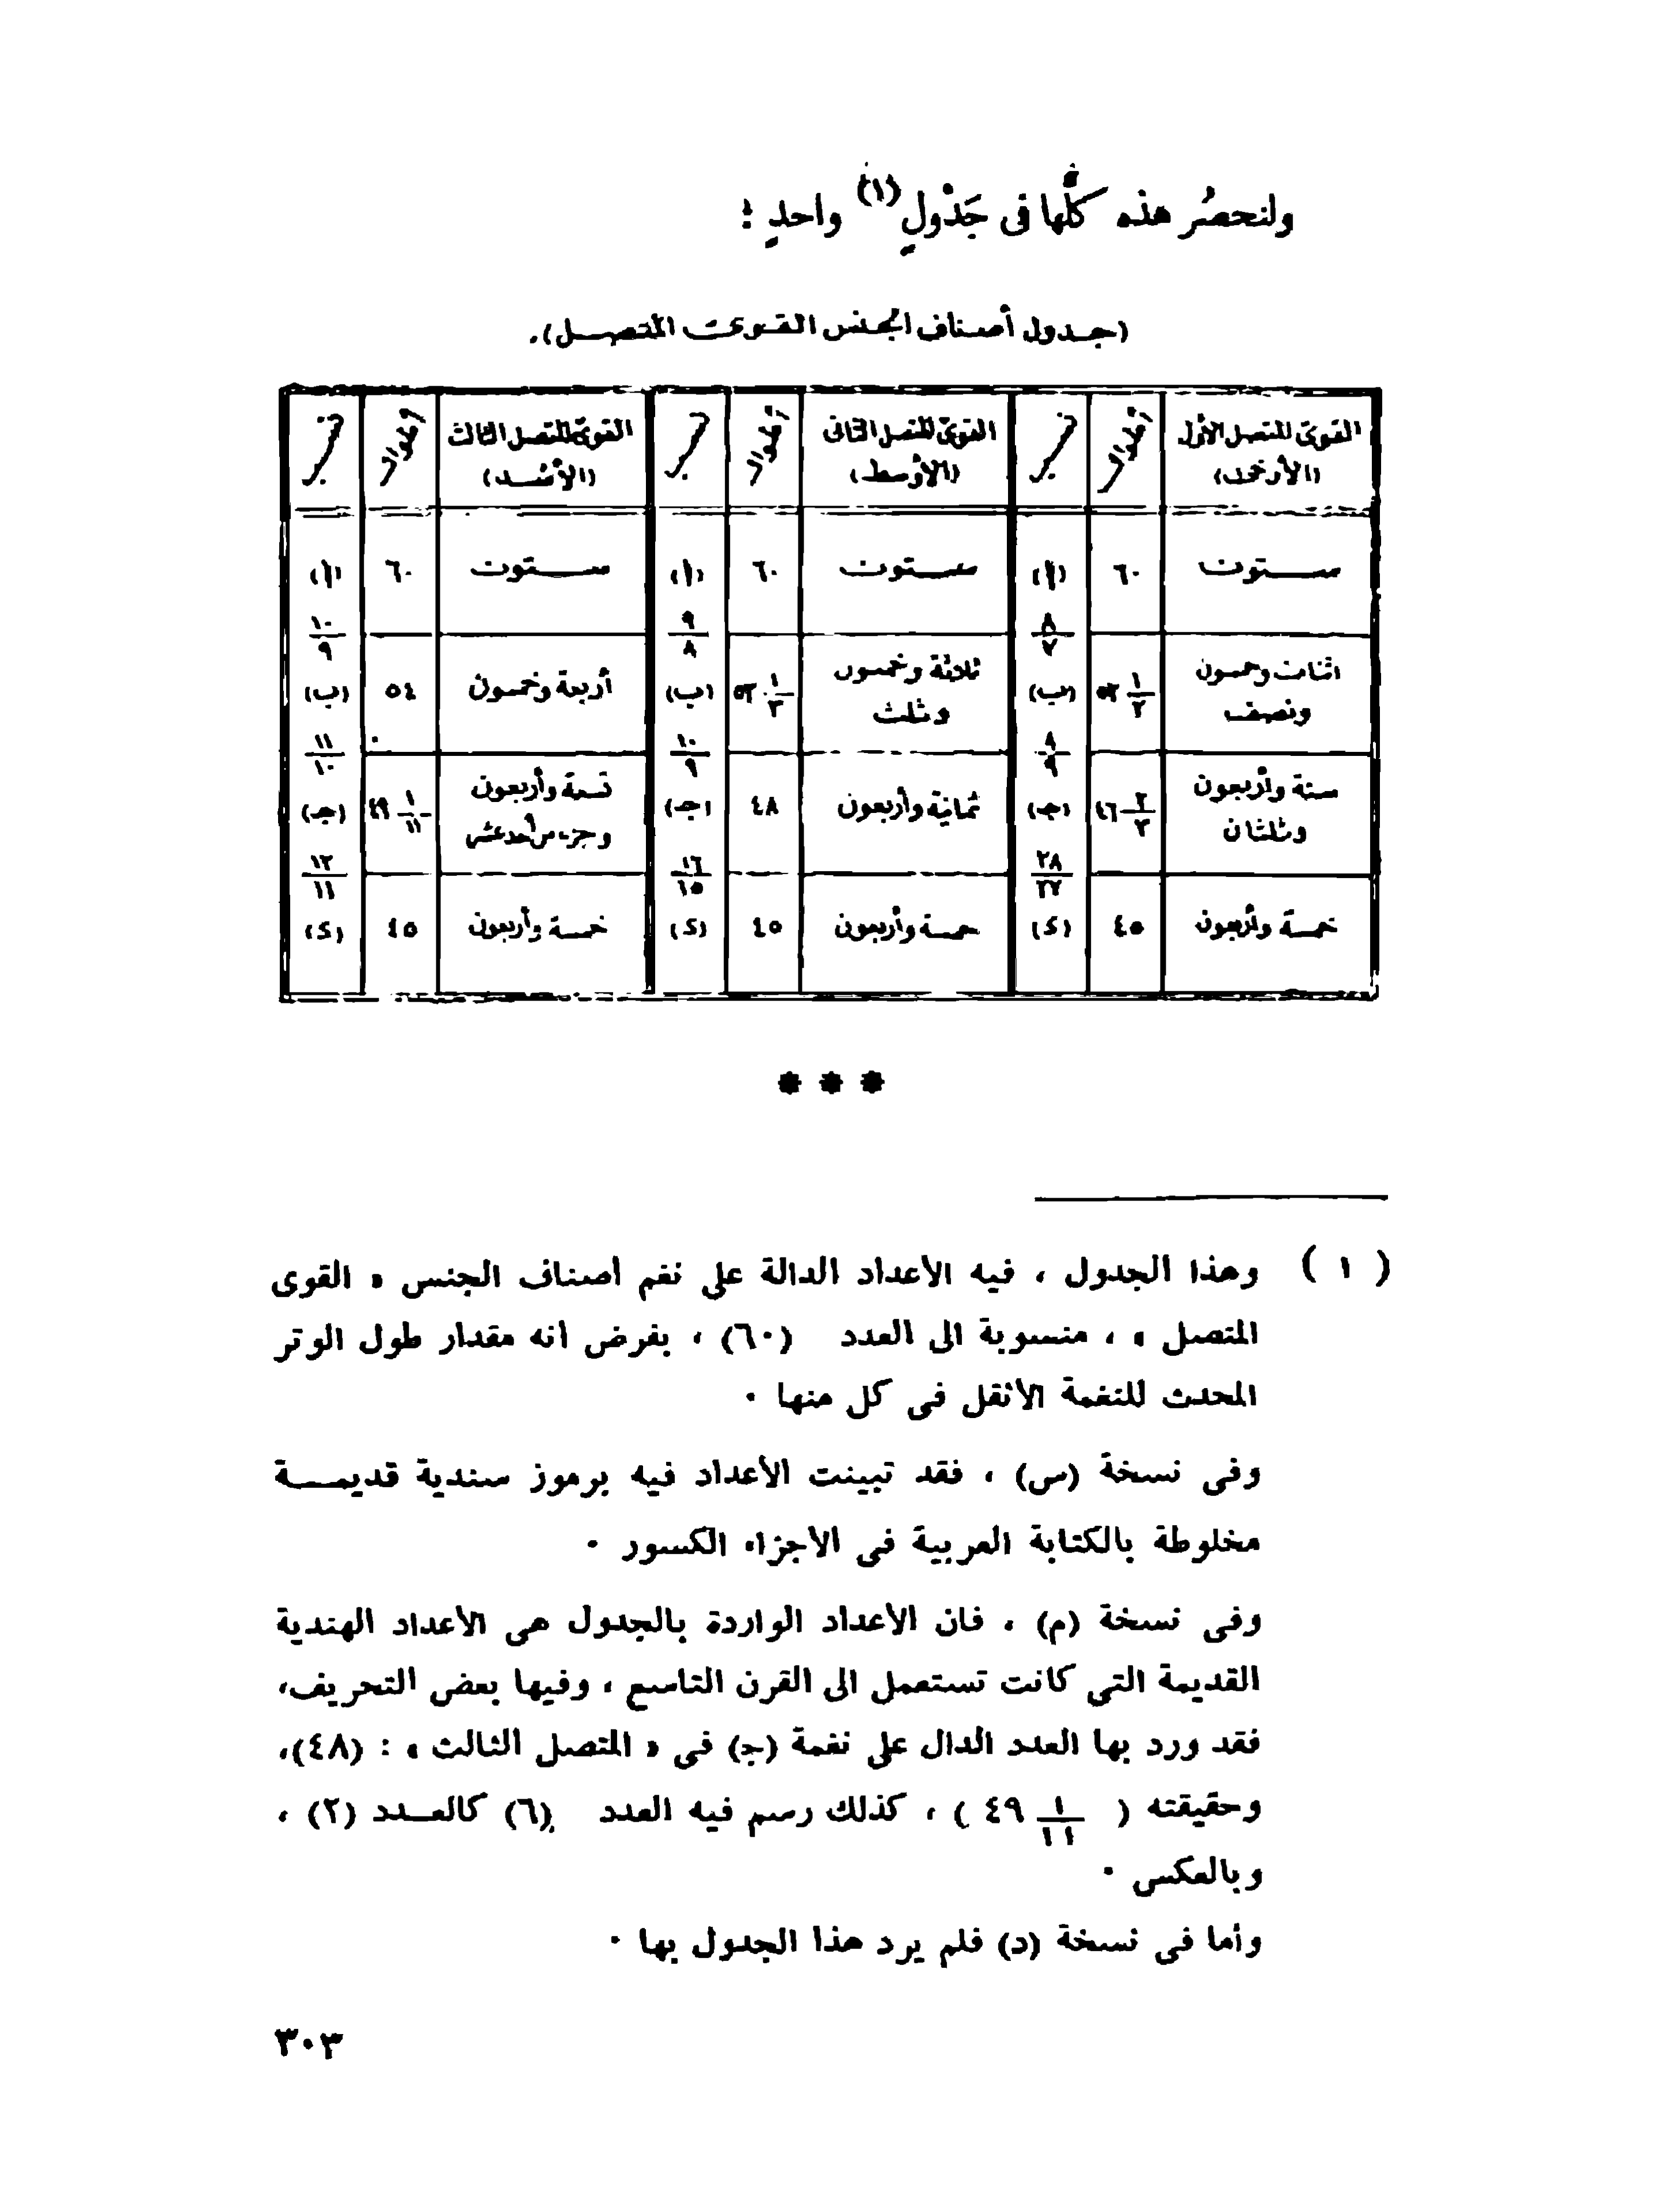 ولنحصُر هذه كلَّها فى جَدْولٍ (١) واحدٍ :
(جدول أصناف الجنس القوىّ المتصل).
القوىّ المتصل الأول أطوال نسب القوىّ المتصل الثانى أطوال نسب القوىّ المتصل الثالث أطوال نسب
(الأرخى) (الأوسط) (الأشد)
ستون ٦٠ (ا) ستون ٦٠ (ا) ستون ٦٠ (ا)
٨/٧ ٩/٨ ١٠/٩
اثنان وخمسون ونصف ٥٢ ١/٢ (ب) ثلاثة وخمسون وثلث ٥٣ ١/٣ (ب) أربعة وخمسون ٥٤ (ب)
٨/٩ ١٠/٩ ١١/١٠
ستة وأربعون وثلثان ٤٦ ٢/٣ (جـ) ثمانية وأربعون ٤٨ (جـ) تسعة وأربعون وجزء من أحد عشر ٤٩ ١/١١ (جـ)
٢٨/٢٧ ١٦/١٥ ١٢/١١
خمسة وأربعون ٤٥ (د) خمسة وأربعون ٤٥ (د) خمسة وأربعون ٤٥ (د)
* * *
( ١ ) وهذا الجدول ، فيه الأعداد الدالة على نغم أصناف الجنس « القوى
المتصل » ، منسوبة الى العدد (٦٠) ، بفرض انه مقدار طول الوتر
المحدث للنغمة الأثقل فى كل منها ٠
وفى نسخة (س) ، فقد تبينت الأعداد فيه برموز سندية قديمـــة
مخلوطة بالكتابة العربية فى الأجزاء الكسور ٠
وفى نسخة (م) ، فان الأعداد الواردة بالجدول هى الأعداد الهندية
القديمة التى كانت تستعمل الى القرن التاسع ، وفيها بعض التحريف،
فقد ورد بها العدد الدال على نغمة (جـ) فى « المتصل الثالث » : (٤٨)،
وحقيقته ( ٤٩ ١/١١ ) ، كذلك رسم فيه العدد (٦) كالعـــدد (٢) ،
وبالعكس ٠
وأما فى نسخة (د) فلم يرد هذا الجدول بها ٠
٣٠٣